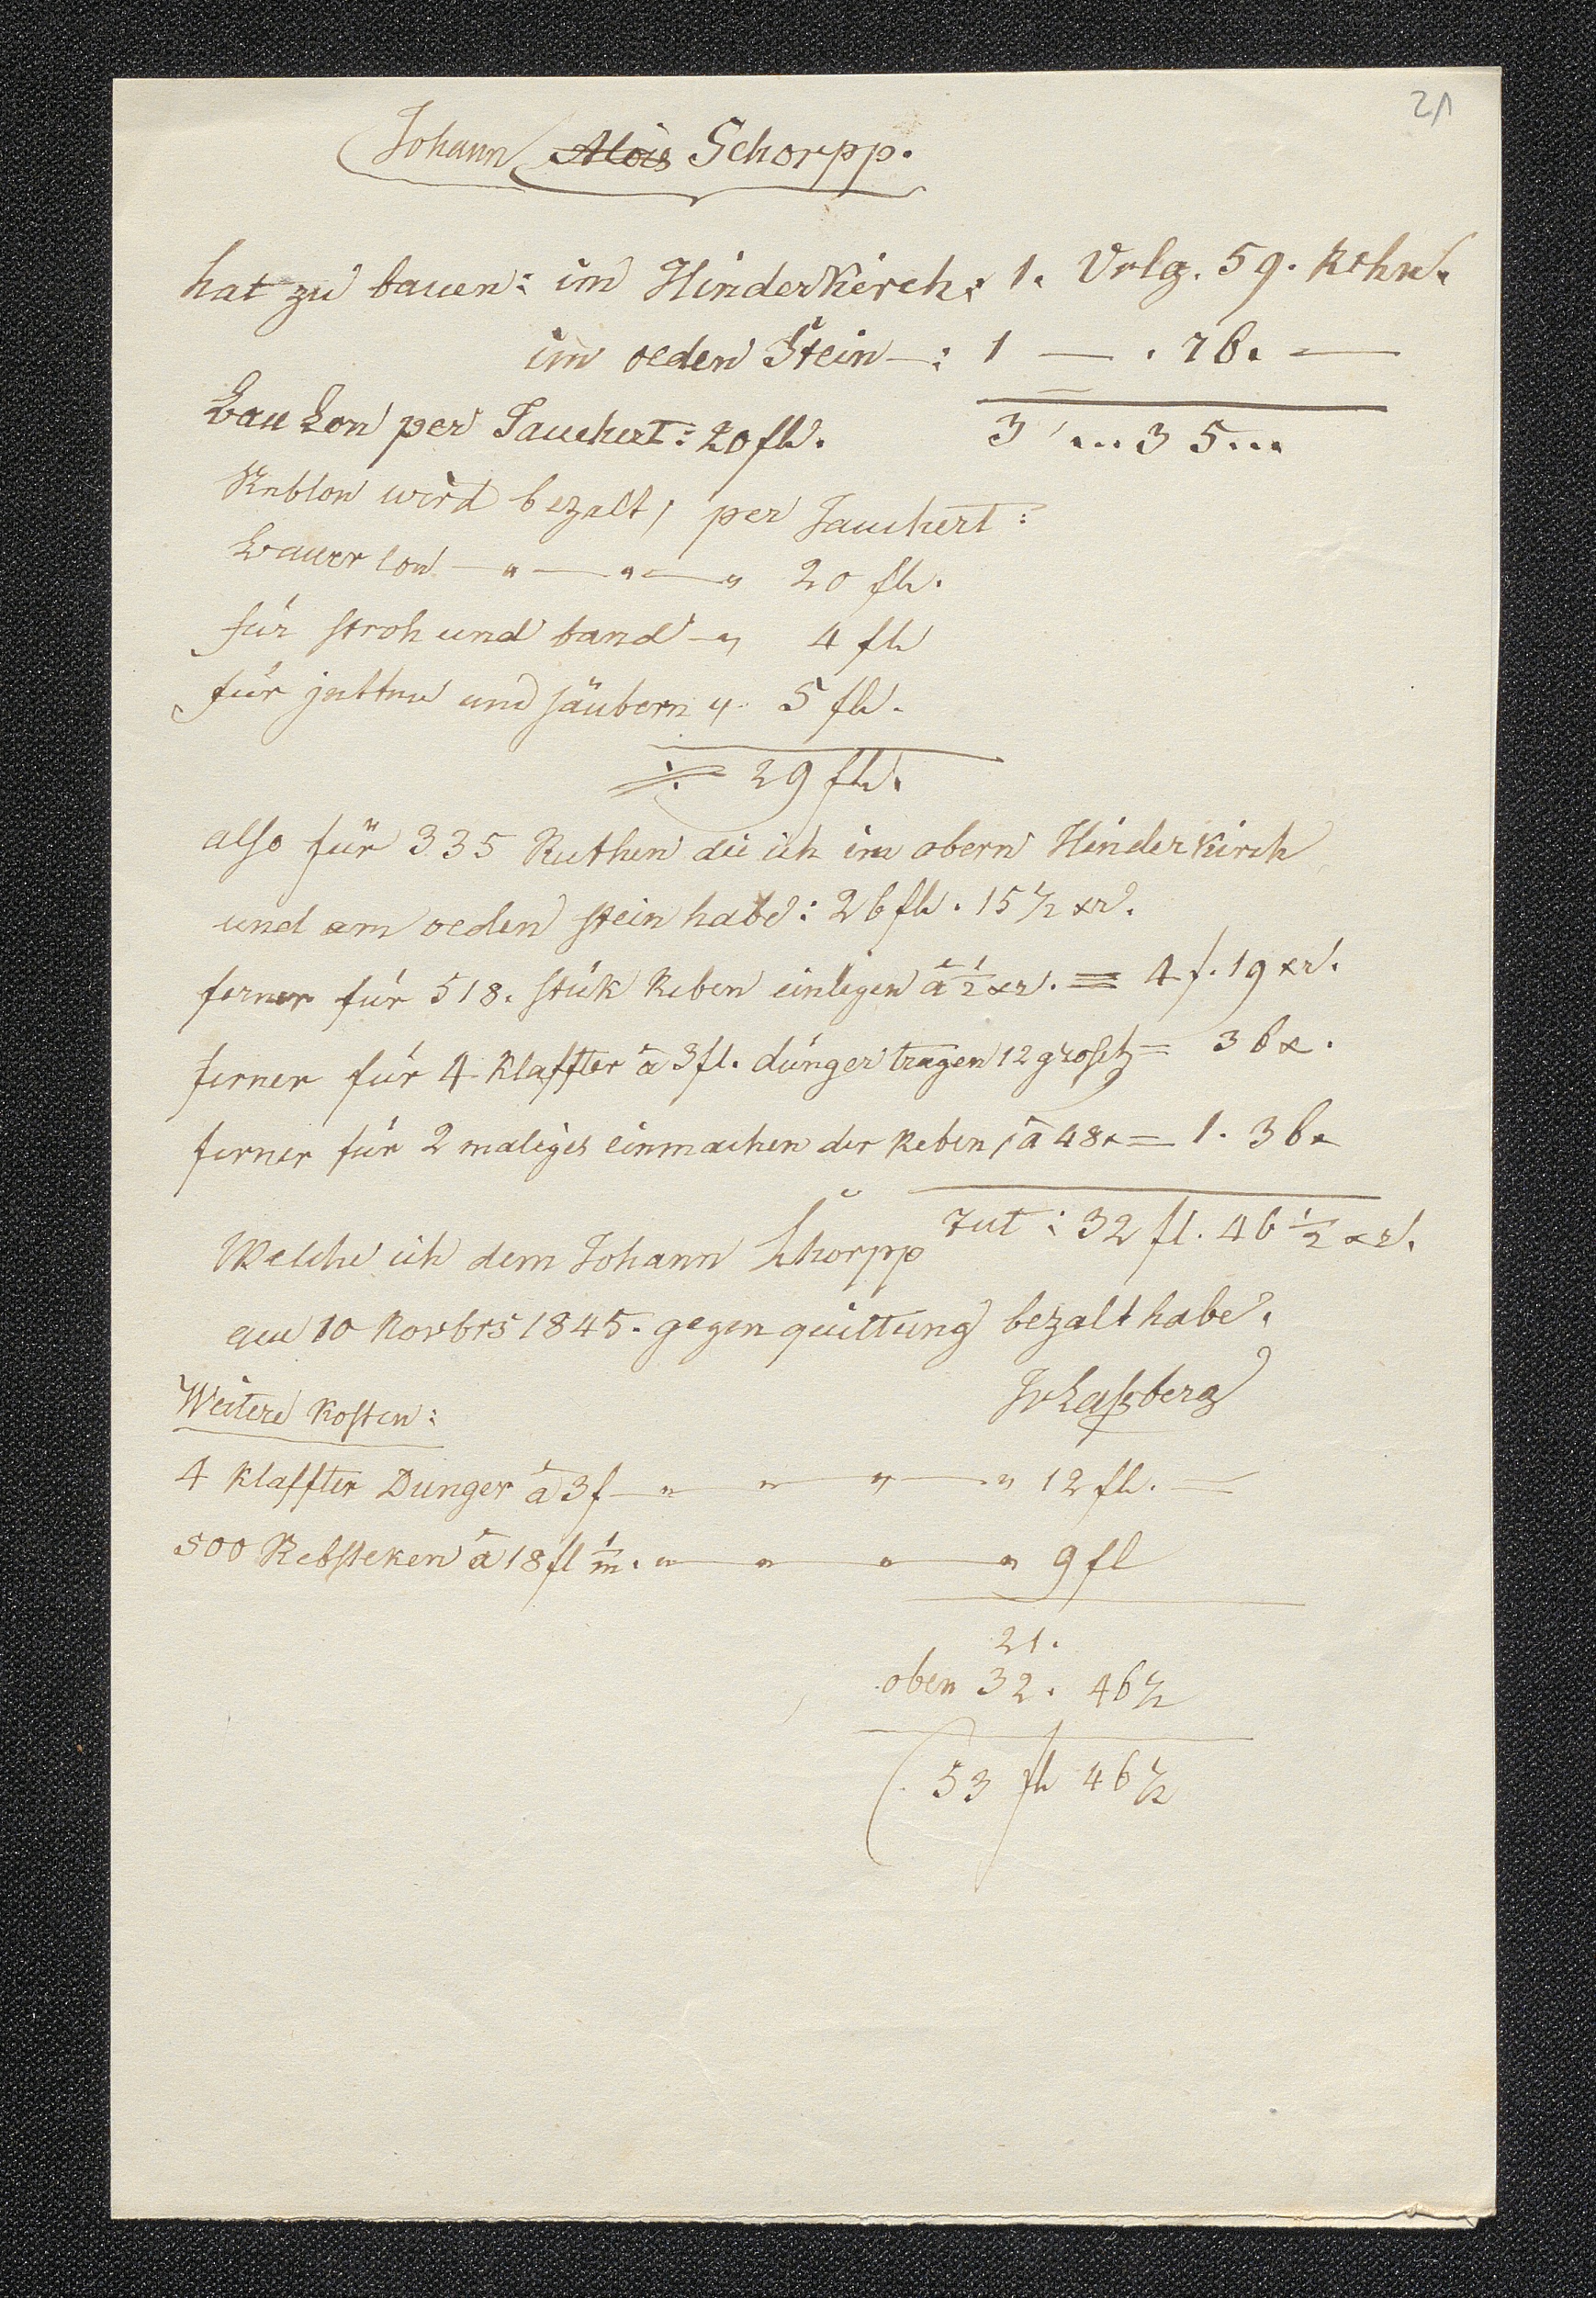 21
Johann Alois Schorpp.
hat zu bauen: im Hinderkirch: 1. Vrlg. 59. Rthn.
im oeden Stein—: 1 — . 76. —
Bau Lon per Jauchert: 20 fl. 3 ... 35...
Reblon wird bezalt, per Jauchert:
Bauerlon — " — " — " 20 fl.
für stroh und band — " 4 fl
für jetten und säubern " 5 fl.
29 fl.
also für 335 Ruthen die ich im obern Hinderkirch
und am oeden stein habe: 26 fl. 15 1/2 xr.
ferner für 518. stük Reben einlegen à 1/2 xr. = 4 f. 19 xr.
ferner für 4 Klaffter à 3 fl. dünger tragen 12 = 36 x.
ferner für 2 maliges einmachen der Reben, à 48 x = 1. 36 x
tut: 32 fl. 46 1/2 xr.
Welche ich dem Johann Schorpp
am 10 Novbrs 1845. gegen quittung bezalt habe.
JvLaßberg
Weitere Kosten:
4 Klaffter Dunger à 3 f — " — " — " — " 12 fl. —
500 Rebsteken à 18 fl 1/m. " — " — " — " 9 fl
21.
oben 32. 46 1/2
53 fl 46 1/2